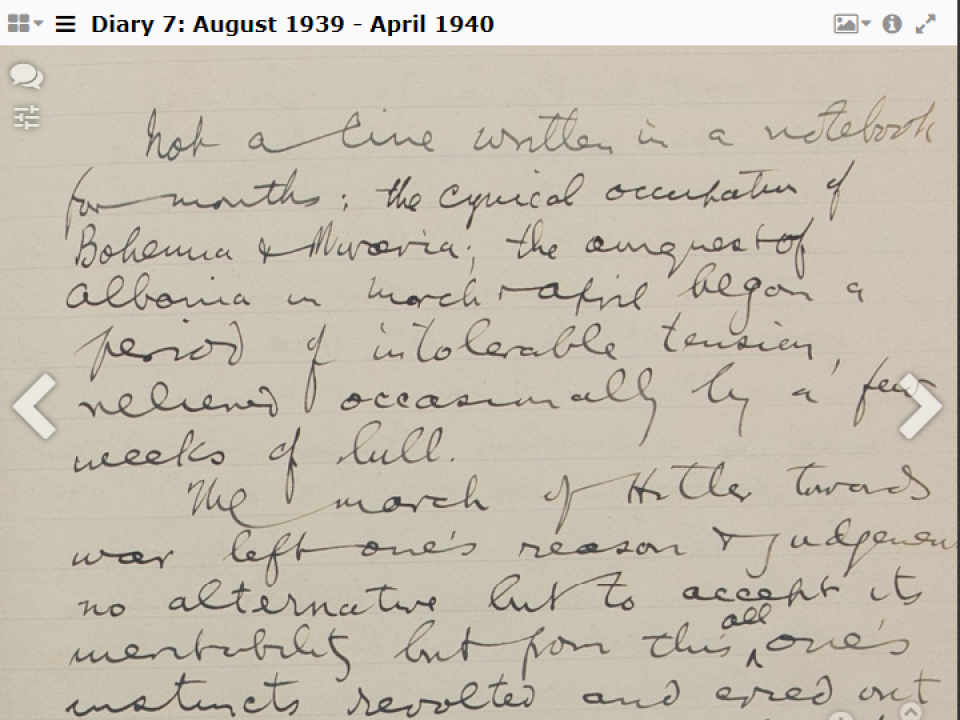 Diary 7: August 1939 - April 1940
Not a line written in a notebook
for months; the cynical occupation of
Bohemia & Moravia; the conquest of
Albania in March & April began a
period of intolerable tension,
relieved occasionally by a few
weeks of lull.
The march of Hitler towards
war left one's reason & judgement
no alternative but to accept its
inevitability but from this all one's
instincts revolted and cried out